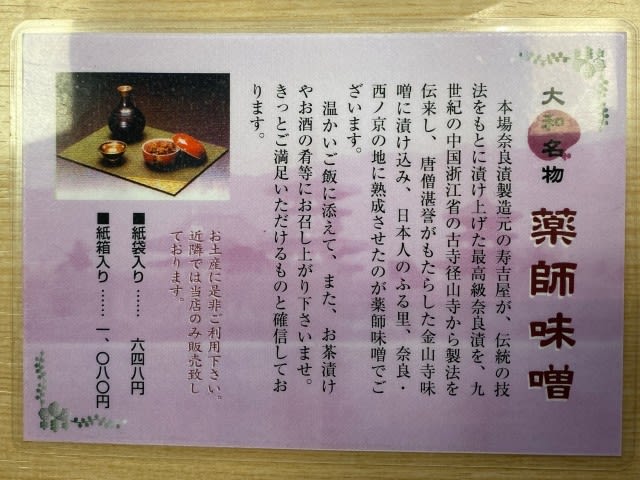 大和名物 薬師味噌
本場奈良漬製造元の寿吉屋が、伝統の技
法をもとに漬け上げた最高級奈良漬を、九
世紀の中国浙江省の古寺径山寺から製法を
伝来し、唐僧湛誉がもたらした金山寺味
噌に漬け込み、日本人のふる里、奈良・
西ノ京の地に熟成させたのが薬師味噌でご
ざいます。
温かいご飯に添えて、また、お茶漬け
やお酒の肴等にお召し上がり下さいませ。
きっとご満足いただけるものと確信してお
ります。
お土産に是非ご利用下さい。
近隣では当店のみ販売致し
ております。
■紙袋入り…… 六四八円
■紙箱入り…… 一、〇八〇円